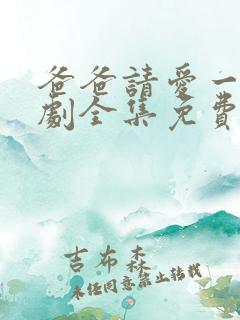 爸爸請愛一
劇全集免費
吉布森
未經同意禁止轉載